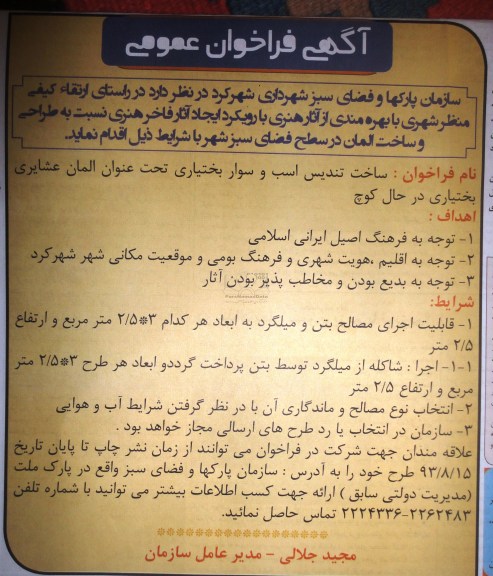 آگهی فراخوان عمومی
سازمان پارکها و فضای سبز شهرداری شهرکرد در نظر دارد در راستای ارتقاء کیفی
منظر شهری با بهره مندی از آثار هنری با رویکرد ایجاد آثار فاخر هنری نسبت به طراحی
و ساخت المان در سطح فضای سبز شهر با شرایط ذیل اقدام نماید.
نام فراخوان : ساخت تندیس اسب و سوار بختیاری تحت عنوان المان عشایری
بختیاری در حال کوچ
اهداف :
۱- توجه به فرهنگ اصیل ایرانی اسلامی
۲- توجه به اقلیم ،هویت شهری و فرهنگ بومی و موقعیت مکانی شهر شهرکرد
۳- توجه به بدیع بودن و مخاطب پذیر بودن آثار
شرایط:
۱- قابلیت اجرای مصالح بتن و میلگرد به ابعاد هر کدام ۳*۲/۵ متر مربع و ارتفاع
۲/۵ متر
۱-۱- اجرا : شاکله از میلگرد توسط بتن پرداخت گرددو ابعاد هر طرح ۳*۲/۵ متر
مربع و ارتفاع ۲/۵ متر
۲- انتخاب نوع مصالح و ماندگاری آن با در نظر گرفتن شرایط آب و هوایی
۳- سازمان در انتخاب یا رد طرح های ارسالی مجاز خواهد بود .
علاقه مندان جهت شرکت در فراخوان می توانند از زمان نشر چاپ تا پایان تاریخ
۹۳/۸/۱۵ طرح خود را به آدرس : سازمان پارکها و فضای سبز واقع در پارک ملت
(مدیریت دولتی سابق ) ارائه جهت کسب اطلاعات بیشتر می توانید با شماره تلفن
۲۲۶۲۴۸۳-۲۲۲۴۳۳۶ تماس حاصل نمائید.
مجید جلالی - مدیر عامل سازمان